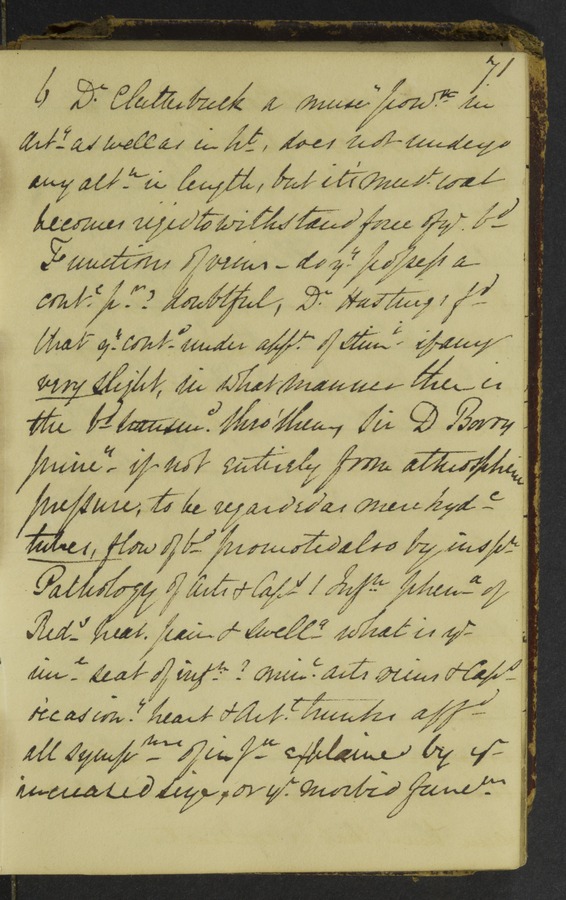 71
6 Dr Clutterbuck a musr powr in
Arts as well as in ht, does not undergo
any altn in length, but its musr coat
becomes rigid to withstand force of ye bd
Functions of veins - do ye possess a
conte pr? doubtful, Dr Hastings fd
that ye contd under appn of stims if any
very slight, in what manner then is
the bd transmd thro them, Sir D Barry
princy if not entirely from atmospheric
pressure, to be regarded as mere hydc
tubes, flow of bd promoted also by inspn
Pathology of arts & Caps 1 Infn phena of
Reds heat. pain & swellg what is ye
ime seat of infn? minu arts veins & Caps
occasionly heart & Artl trunks affd
all symptms of infn explained by ye
increased size, or ye morbid functn